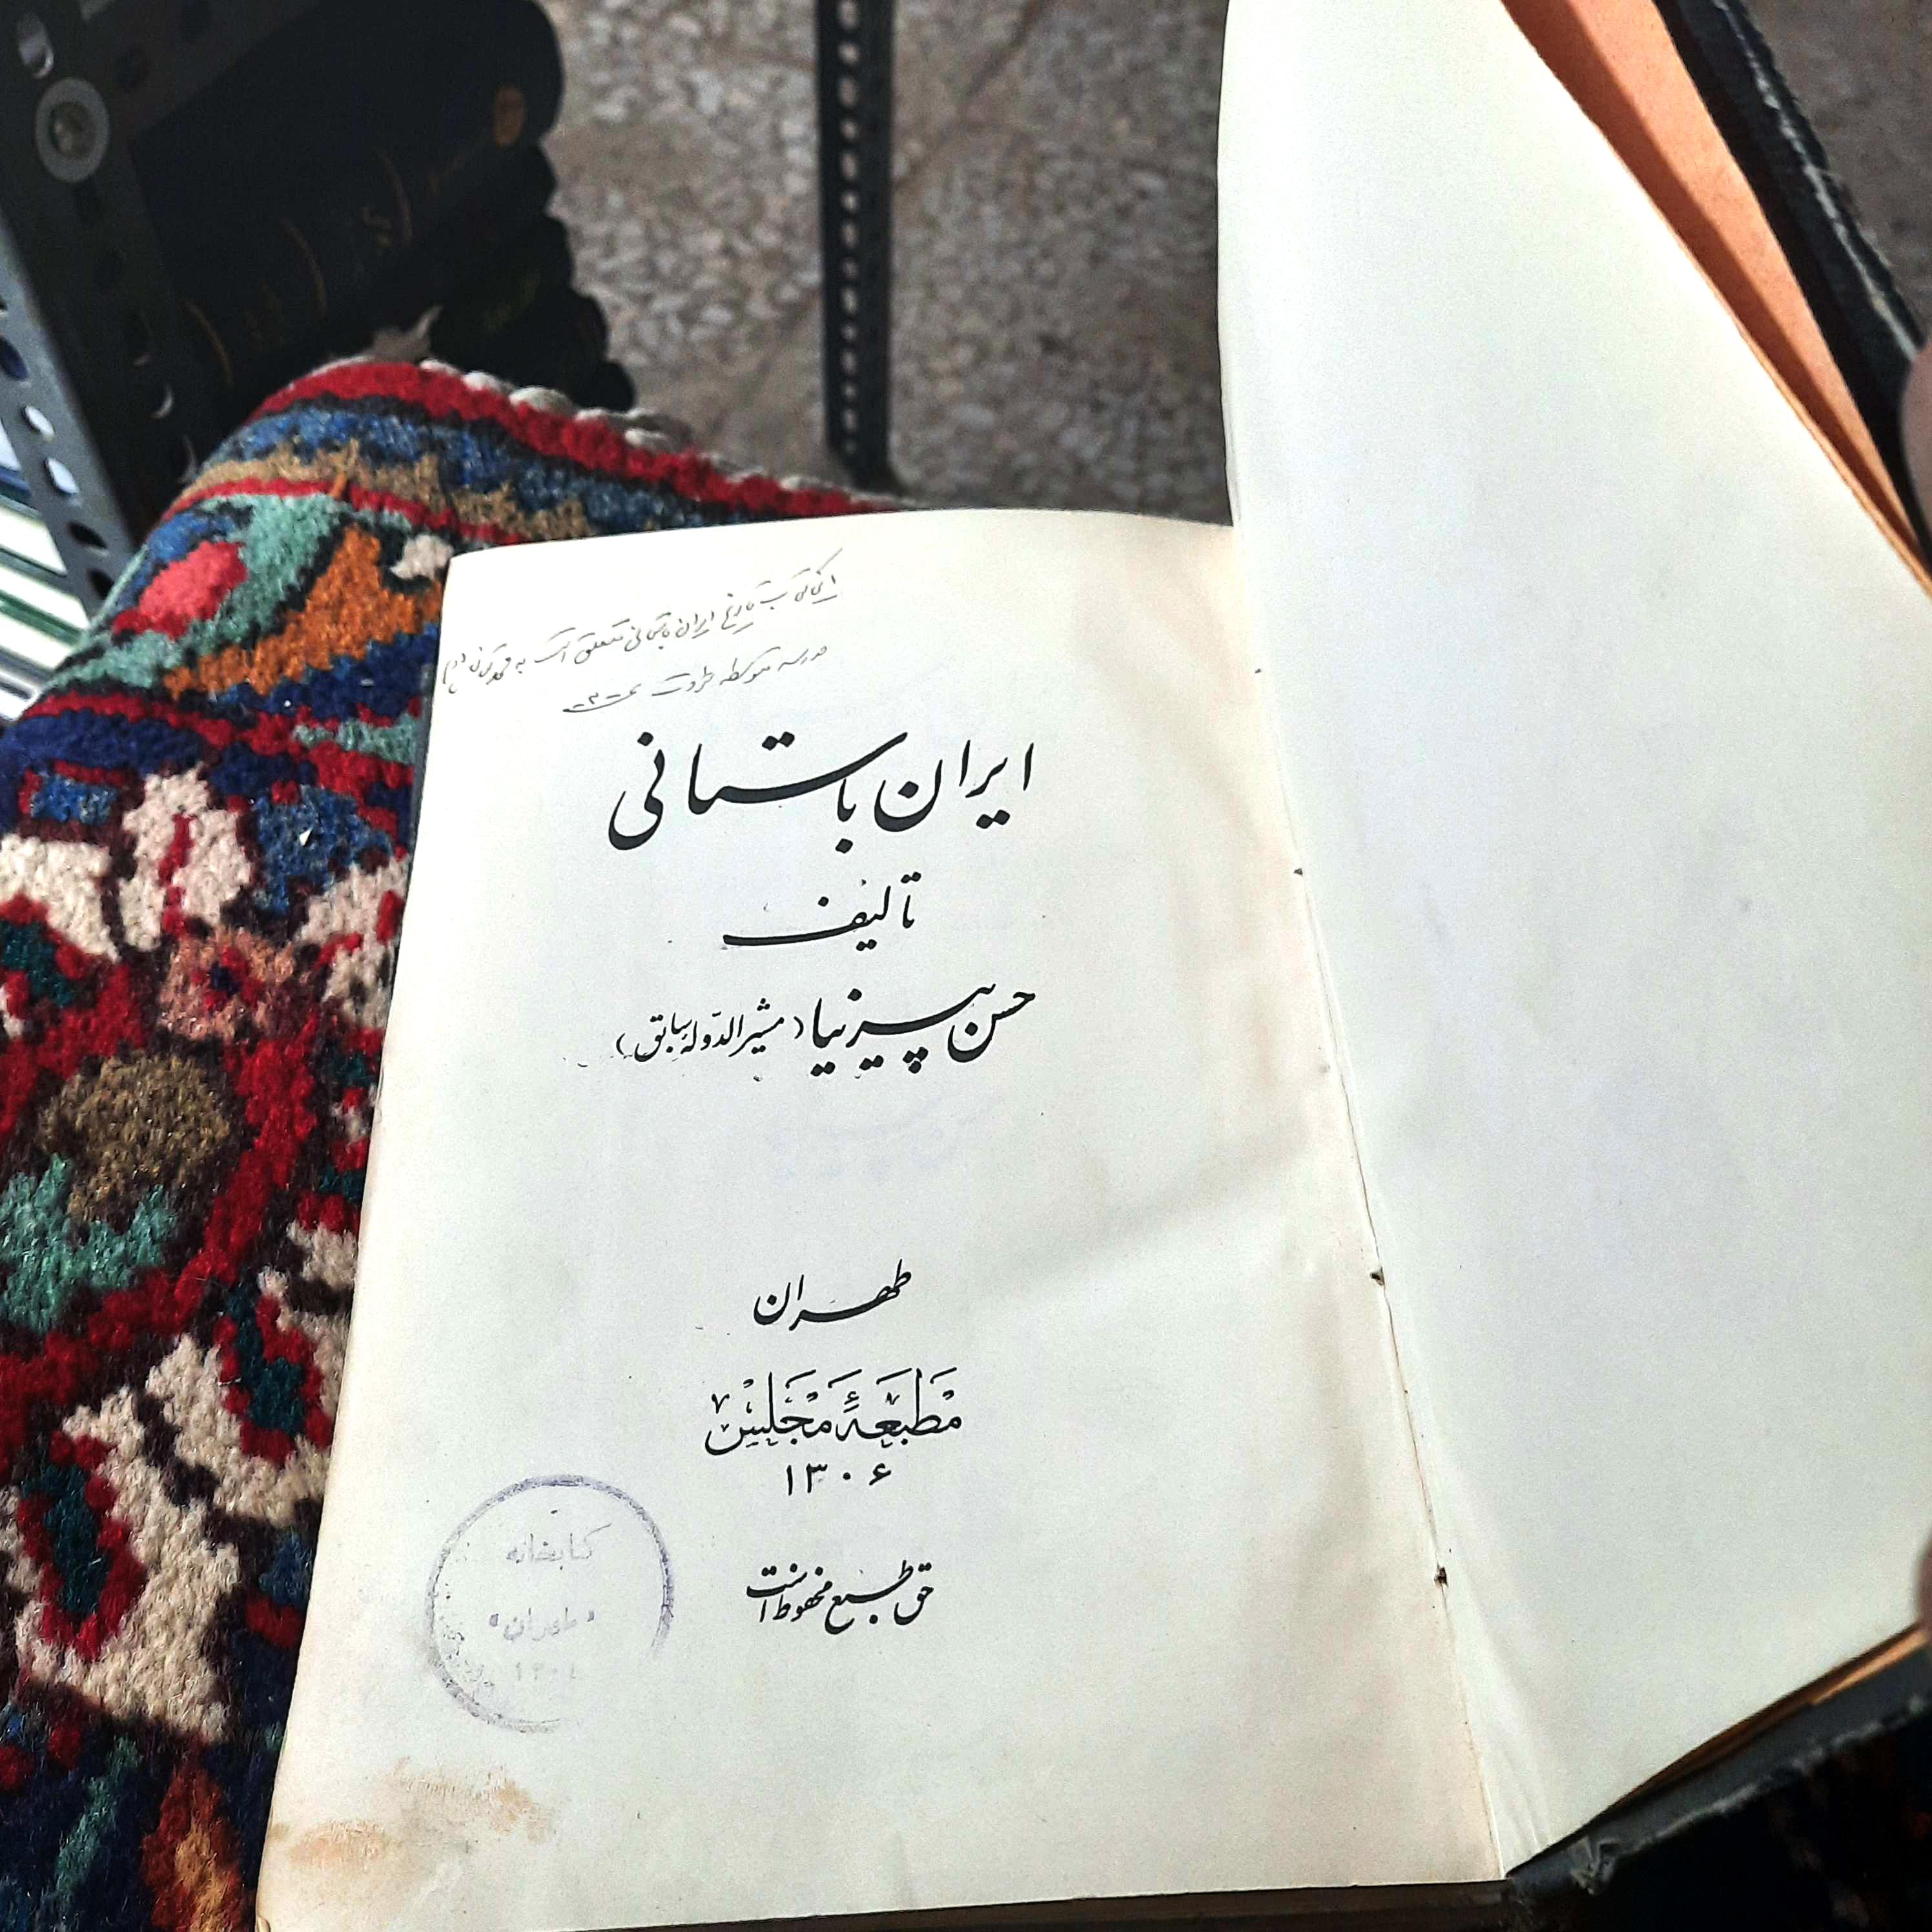 این کتاب تاریخ ایران باستانی متعلق است به
مدرسه متوسطه ثروت
ایران باستانی
تألیف
حسن پیرنیا (مشیرالدّوله سابق)
طهران
مَطبَعَهٔ مَجْلِسْ
۱۳۰۶
حق طبع محفوظ است
کتابخانه
طهران